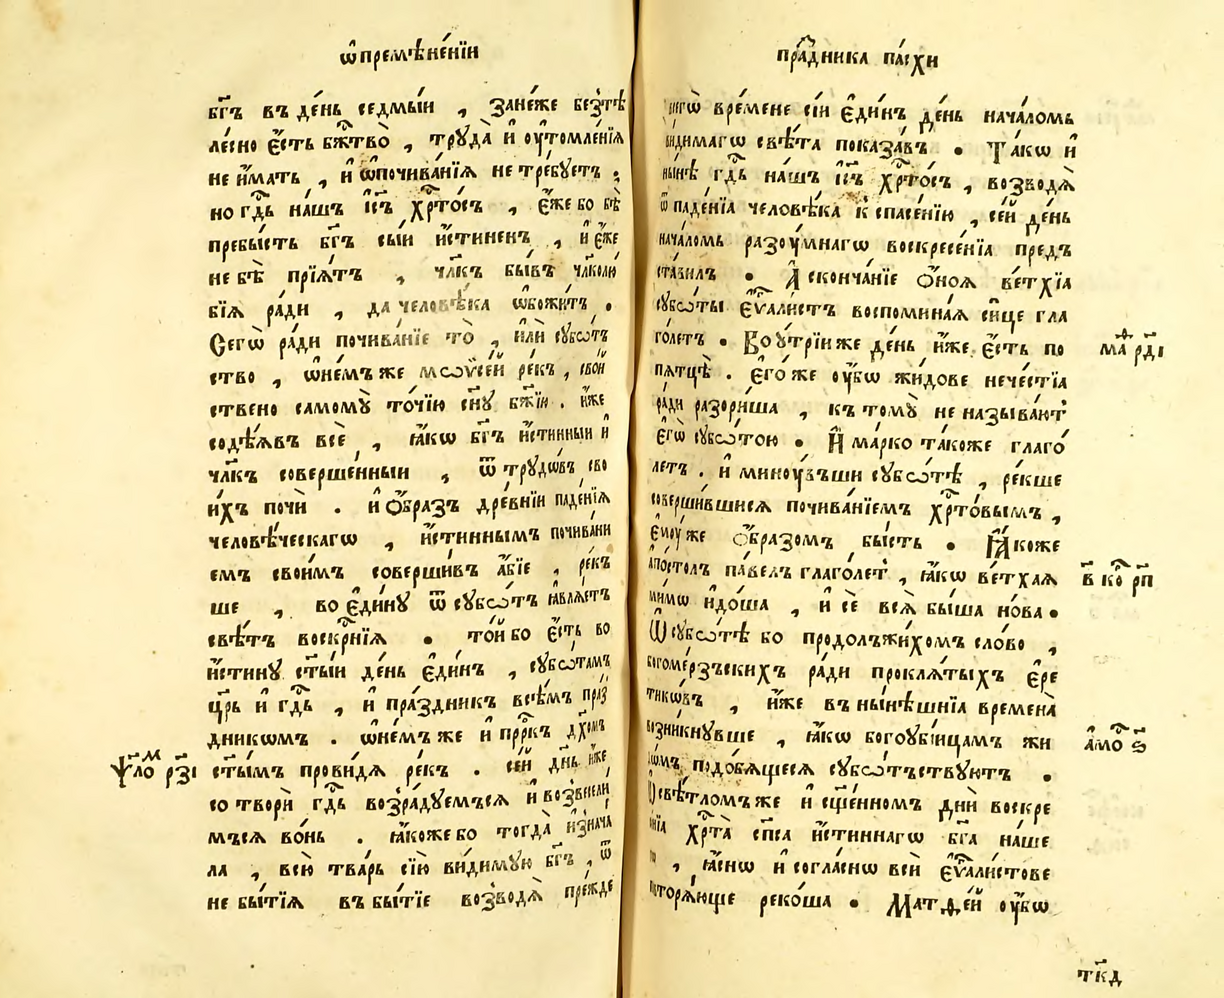 ѡ҆премѣне́нїи
бг҃ъ въ де́нь седмы́и , зане́же безтѣ
ле́сно є҆́сть бж҃тво̀ , труда̀ и҆ оу҆томле́нїѧ
не и҆́мать , и҆ ѡ҆почива́нїѧ не тре́бꙋетъ ;
но гд҇ь на́шъ і҆с҃ъ хр҇то́съ , є҆́же бо бѣ̀
пребы́сть бг҃ъ сы́и и҆́стиненъ , и҆ є҆́же
не бѣ̀ прїѧ́тъ , чл҃къ бы́въ чл҃колю
бїѧ ра́ди , да человѣ́ка ѡ҆божи́тъ .
Сегѡ̀ ра́ди почива́нїе то̀ , и҆лѝ сꙋбѡ́тъ
ство , ѡ҆не́мъ же мѡѷсе́й ре́къ , сво́й
ствено самомꙋ̀ то́чїю сн҃ꙋ бж҃їю . и҆́же
содѣ́ѧвъ всѐ , ꙗ҆́кѡ бг҃ъ и҆́стинныи и҆
чл҃къ соверше́нныи , ѿ трꙋдѡ́въ сво
и́хъ почѝ . и҆ ѻ҆́бразъ дре́внїи паде́нїѧ
человѣ́ческагѡ , и҆́стиннымъ почива́ни
емъ свои́мъ соверши́въ а҆́бїе , ре́къ
ше , во є҆ди́нꙋ ѿ сꙋбѡ́тъ ꙗ҆влѧ́етъ
свѣ́тъ воскр҇нїѧ . то́й бо є҆́сть во
и҆́стинꙋ ст҃ы́и де́нь є҆ди́нъ , сꙋбѡ́тамъ
цр҃ь и҆ гд҇ь , и҆ пра́здникъ всѣ́мъ пра́з
дникѡмъ . ѡ҆не́мъ же и҆ прⷪ҇ркъ дх҃омъ
ст҃ы́мъ прови́дѧ ре́къ . се́й дн҃ь и҆́же
со творѝ гд҇ь возра́дꙋемъсѧ и҆ возвесели́
мъсѧ во́нь . ꙗ҆́коже бо тогда̀ и҆знача́
ла , всю̀ тва́рь сїю̀ ви́димꙋю бг҃ъ , ѿ
не бытїѧ̀ въ бытїѐ возводѧ̀ пре́жде
ѱ҃ло рз҃і
пра́здника па́схи
вре́мене сі́и є҆ди́нъ де́нь нача́ломъ
ви́димагѡ свѣ́та показа́въ . Та́кѡ и҆
ны́нѣ гд҇ь на́шъ і҆с҃ъ хр҇то́съ , возводѧ̀
ѿ паде́нїа человѣ́ка к спасе́нїю , се́й де́нь
нача́ломъ разоу́мнагѡ воскресе́нїа предъ
ста́вилъ . А҆ сконча́нїе ѻ҆́ноѧ ве́тхїа
сꙋбѡ́ты є҆ѵⷢ҇али́стъ воспомина́ѧ си́це гла
го́летъ . Во у҆́трїи же де́нь и҆́же є҆́сть по
пѧтцѣ̀ . є҆го́ же оу҆́бѡ жи́дове нече́стїа
ра́ди разори́ша , къ томꙋ̀ не называ́ют
є҆гѡ̀ сꙋбѡ́тою . И҆ ма́рко та́коже глаго́
летъ . и҆ миноу́въши сꙋбѡ́тѣ , ре́кше
соверши́вшисѧ почива́нїемъ хр҇то́вымъ ,
є҆моу́ же ѻ҆́бразомъ бы́сть . Ꙗ҆́коже
а҆по́столъ па́велъ глаго́лет , ꙗ҆́кѡ ве́тхаѧ
ми́мѡ и҆до́ша , и҆ сѐ всѧ̀ бы́ша но́ва .
Ѡ҆ сꙋбѡ́тѣ бо продолъжи́хомъ сло́во ,
богоме́рзъскихъ ра́ди проклѧ́тыхъ є҆ре
тикѡ́въ , и҆́же въ ны́нѣшнїа времена̀
возни́кнꙋвше , ꙗ҆́кѡ богоуби́йцамъ жи
дѡ́мъ подо́бѧщесѧ сꙋбѡ́тъствꙋютъ .
Ѡ҆ свѣ́тломъ же и҆ сщ҃е́нномъ днѝ воскре
се́нїа хр҇та̀ сп҃са и҆́стиннагѡ бг҃а на́ше
гѡ , ꙗ҆́снѡ и҆ согла́снѡ всѝ є҆ѵⷢ҇али́стове
повторѧ́юще реко́ша . Матѳе́й оу҆́бѡ
ма́ѳ рд҃і
в҃ ко́р рп
а҆мо́ ѕ҃
тк҃д